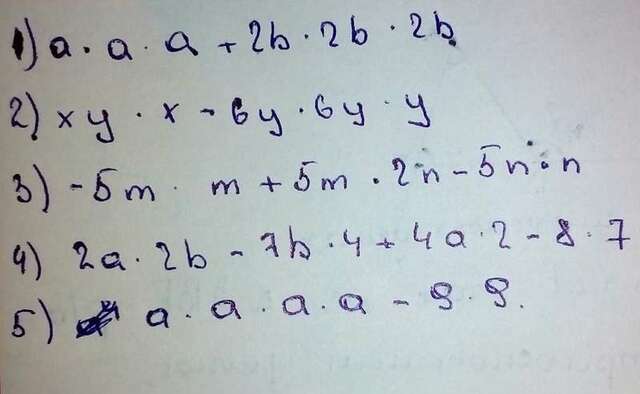 1) a · a · a + 2b · 2b · 2b
2) xy · x - 6y · 6y · y
3) -5m · m + 5m · 2n - 5n · n
4) 2a · 2b - 7b · 4 + 4a · 2 - 8 · 7
5) a · a · a · a - 9 · 9.